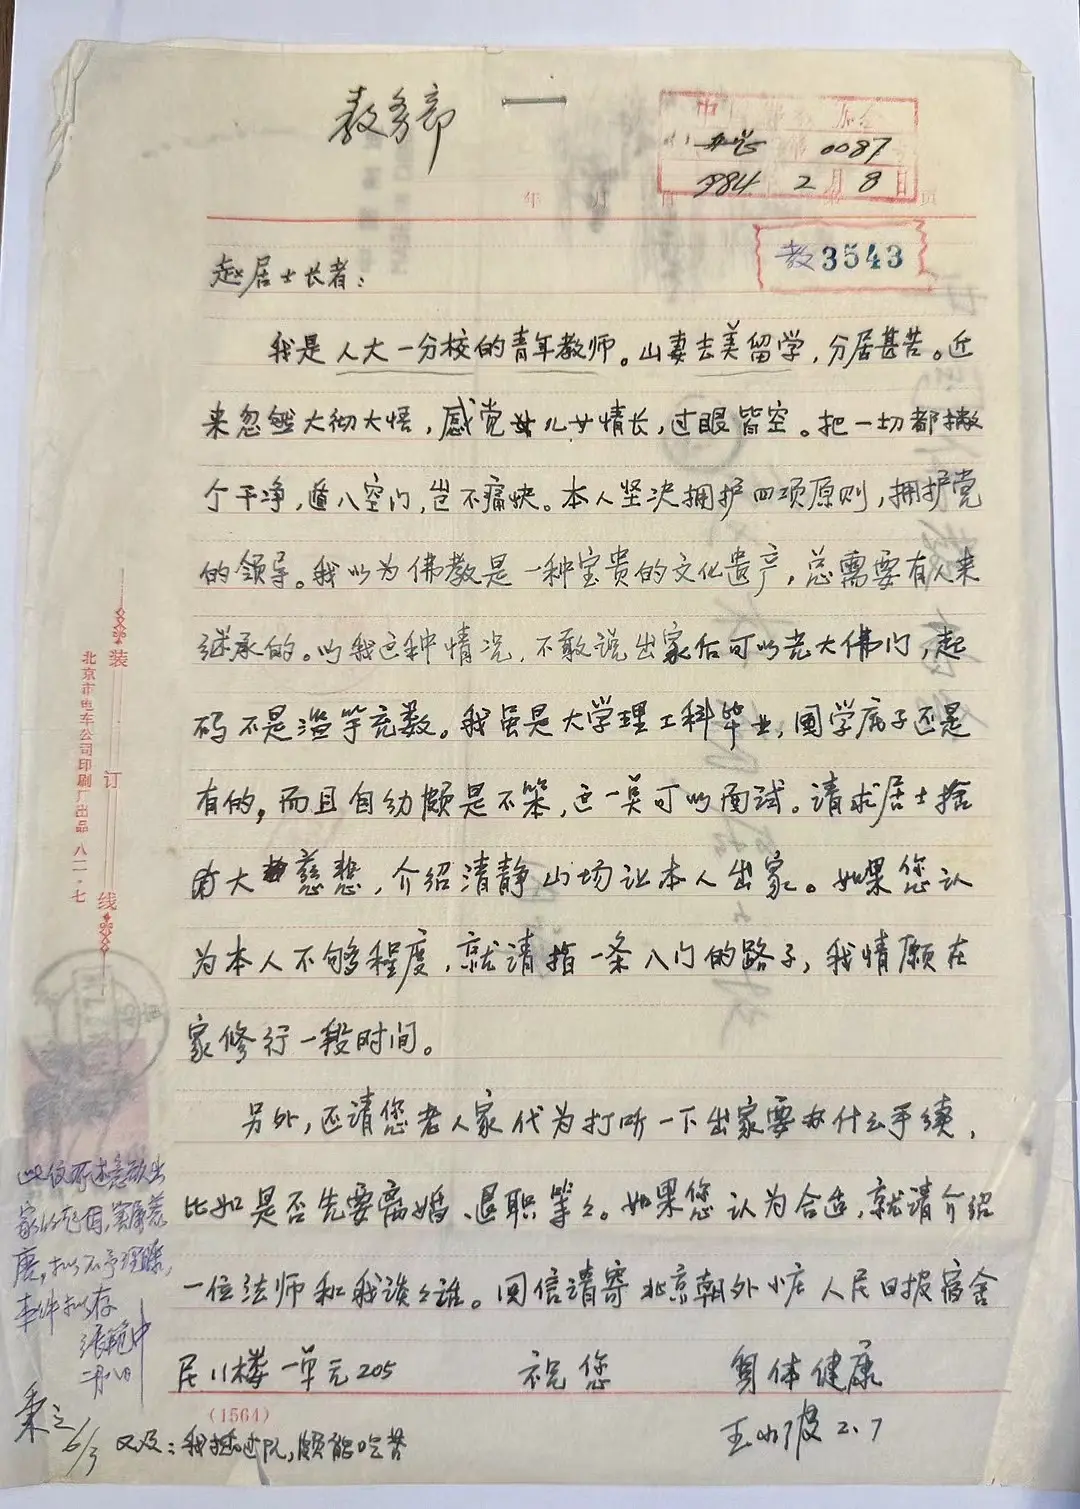 教务部
0087
1984 2月8日
年 月 日 第 页
教3543
赵居士长者:
我是人大一分校的青年教师。山妻去美留学,分居甚苦。近
来忽然大彻大悟,感觉儿女情长,过眼皆空。把一切都撇
个干净,遁入空门,岂不痛快。本人坚决拥护四项原则,拥护党
的领导。我以为佛教是一种宝贵的文化遗产,总需要有人来
继承的。以我这种情况,不敢说出家后可以光大佛门,起
码不是滥竽充数。我虽是大学理工科毕业,国学底子还是
有的,而且自幼颇是不笨,这一莫可以面试。请求居士捨
大慈悲,介绍清静山场让本人出家。如果您认
为本人不够程度,就请指一条入门的路子,我情愿在
家修行一段时间。
另外,还请您老人家代为打听一下出家要办什么手续,
比如是否先要离婚、退职等々。如果您认为合适,就请介绍
一位法师和我谈々谁。回信请寄北京朝外小庄人民日报宿舍
尼11楼一单元205 祝您 身体健康
王小波 2.7
(1564)
又及:我插过队,颇能吃苦
装订线
北京市电车公司印刷厂出品 八二·七
此位所述急欲出
家的起因,实属荒
唐,拟不予理睬,
来件拟存
二月八日
6/3